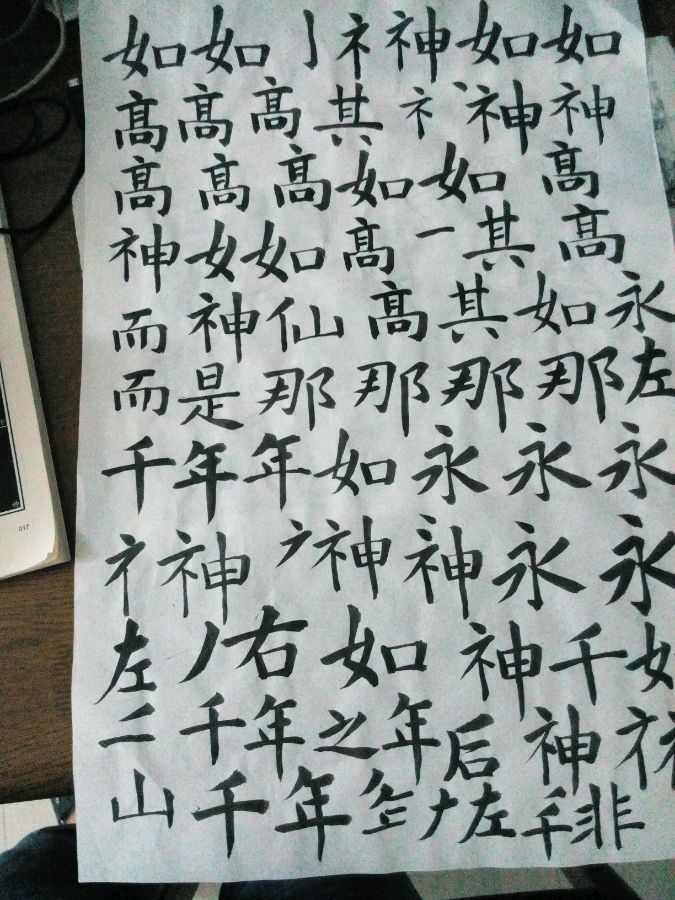 如如丨礻神如如
髙髙髙其礻丶神神
髙髙髙如如髙
神女如髙一其髙
而神仙髙其如永
而是那那那那左
千年年如永永永
礻神神神永永
左丿右如神千如
千年之年后神礻
山千年左千非